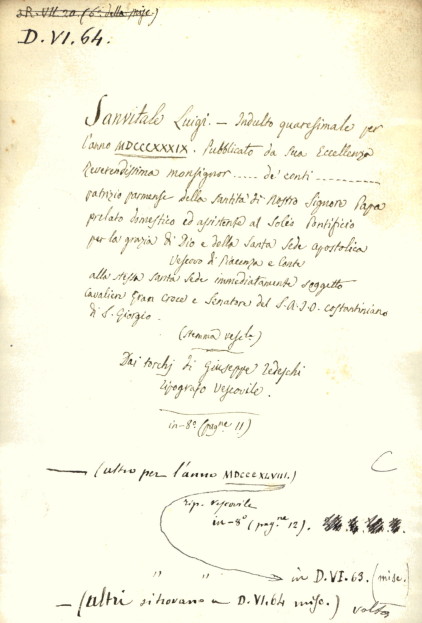 R. VII. 20 (6ª della misc.)
D. VI. 64.
Sanvitale Luigi. — Indulto quaresimale per
l'anno MDCCCXXXIX. Pubblicato da Sua Eccellenza
Reverendissima monsignor ..... de' conti ..........
patrizio parmense della santità di Nostro Signore Papa
prelato domestico ed assistente al Solio Pontificio
per la grazia di Dio e della Santa Sede apostolica
Vescovo di Piacenza e Conte
alla stessa Santa Sede immediatamente soggetto
Cavaliere Gran Croce e Senatore del S. A. I. O. costantiniano
di S. Giorgio.
(stemma vesc.)
Dai torchj di Giuseppe Tedeschi
tipografo Vescovile.
in-8º (pagne 11)
— (altro per l'anno MDCCCXLVIII.) C
tip. vescovile
in-8º (pagne 12).
" " in D. VI. 63. (misc.)
— (altri si trovano in D. VI. 64 misc.) volta